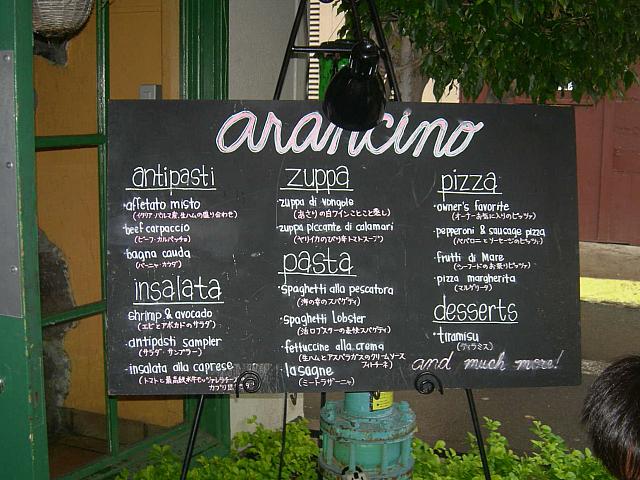 arancino
antipasti
affetato misto
(イタリア・パルマ産、生ハムの盛り合わせ)
beef carpaccio
(ビーフ・カルパッチョ)
bagna cauda
(バーニャ・カウダ)
insalata
shrimp & avocado
(エビとアボカドのサラダ)
antipasti sampler
(サラダ・サンプラー)
insalata alla caprese
zuppa
zuppa di vongole
(あさりの白ワインことこと蒸し)
zuppa piccante di calamari
(ヤリイカのぴり辛トマトスープ)
pasta
spaghetti alla pescatora
(海の幸のスパゲティ)
spaghetti lobster
(活ロブスターの豪快スパゲティ)
fettuccine alla crema
(生ハムとアスパラガスのクリームソース
フィトチーネ)
lasagne
(ミートラザーニャ)
pizza
owner's favorite
(オーナーお気に入りのピッツァ)
pepperoni & sausage pizza
(ペパロニとソーセージのピッツァ)
frutti di Mare
(シーフードのお祭りピッツァ)
pizza margherita
(マルゲリータ)
desserts
tiramisu
(ティラミス)
and much more!